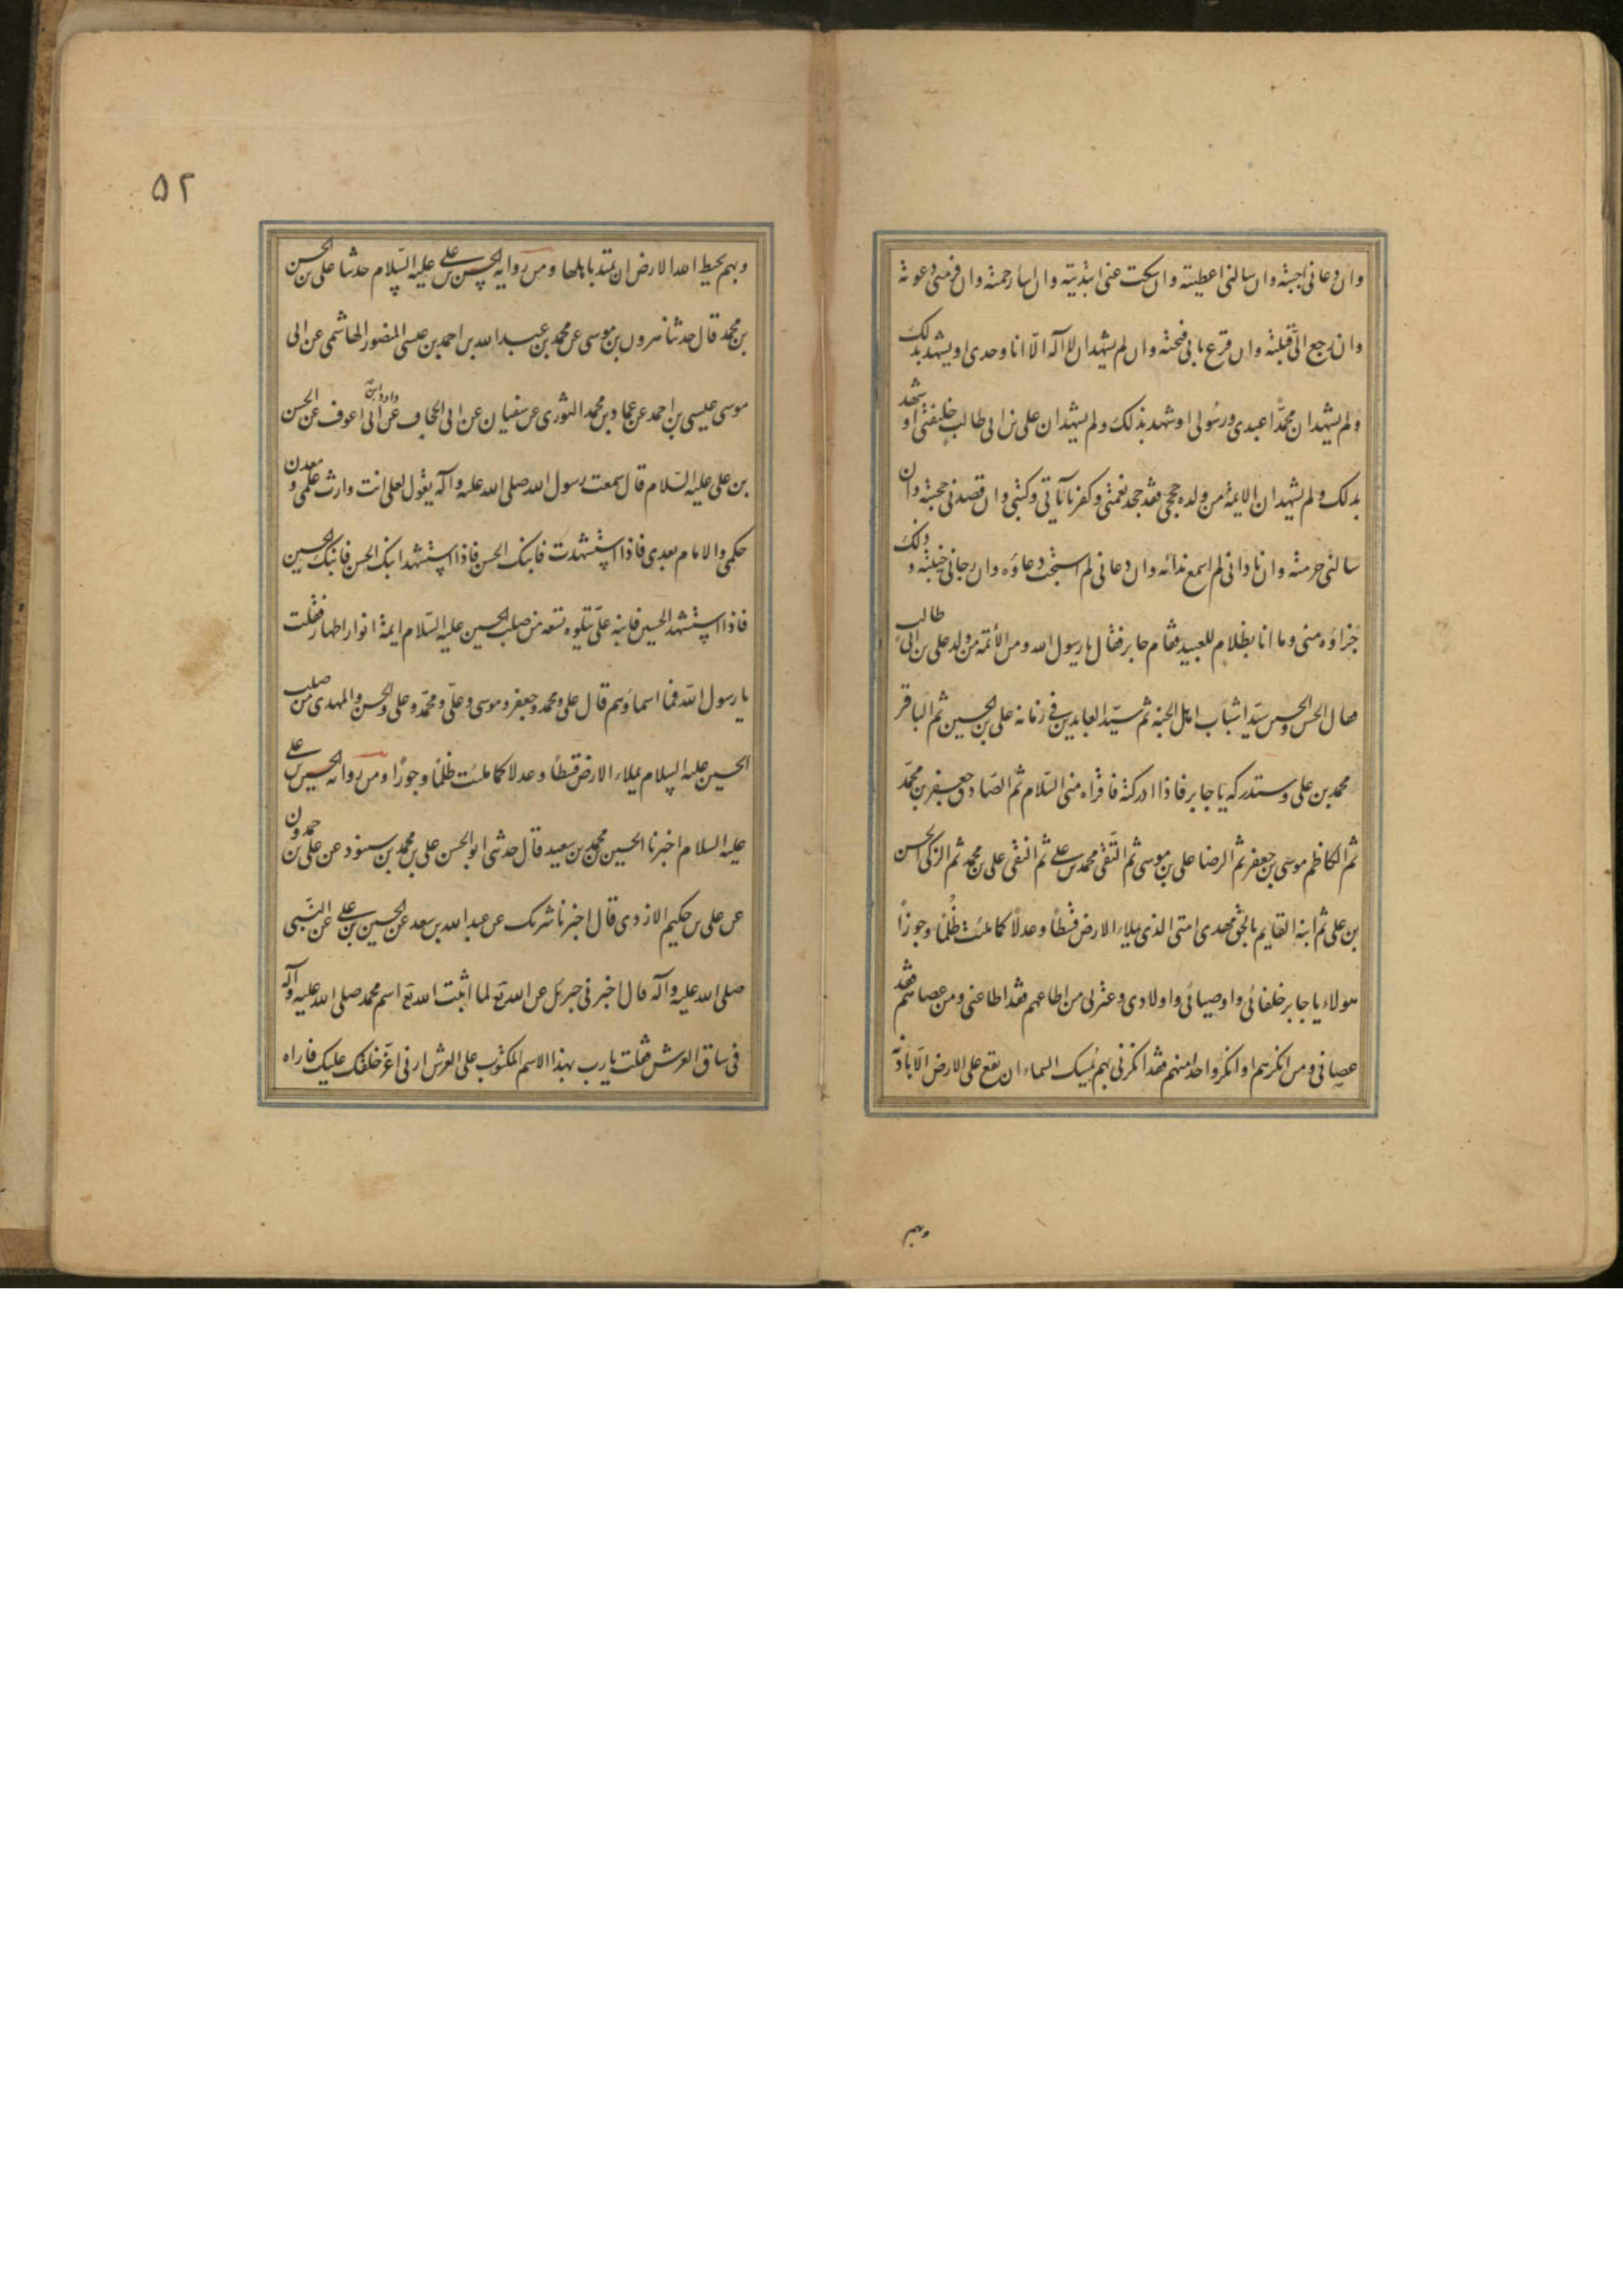 وان دعانی اجبته وان سالنی اعطیته وان سکت عنی ابتدیته وان اساء رحمته وان فر منی دعوته
وان رجع الیّ قبلته وان قرع بابی فتحته وان لم یشهد ان لا اله الّا انا وحدی او یشهد بذلک
ولم یشهد ان محمّدا عبدی ورسولی او شهد بذلک ولم یشهد ان علی بن ابی طالب خلیفتی او شهد
بذلک ولم یشهد ان الایمة من ولده حججی فقد جحد نعمتی وکفر بآیاتی وکتبی وان قصدنی حجبته وان
سالنی حرمته وان نادانی لم اسمع ندائه وان دعانی لم استجب دعاؤه وان رجانی خیبته وذلک
جزاؤه منی وما انا بظلام للعبید فقام جابر فقال یا رسول الله ومن الأئمة من ولد علی بن ابی طالب
فقال الحسن والحسین سیّدا شباب اهل الجنة ثم سیّد العابدین فی زمانه علی بن الحسین ثم الباقر
محمد بن علی وستدرکه یا جابر فاذا ادرکته فاقراه منی السّلام ثم الصّادق جعفر بن محمّد
ثم الکاظم موسی بن جعفر ثم الرضا علی بن موسی ثم التّقی محمد بن علی ثم النقی علی بن محمد ثم الزکی الحسن
بن علی ثم ابنه القایم بالحق مهدی امتی الذی یملاء الارض قسطًا وعدلًا کما ملئت ظُلمًا وجورًا
هولاء یا جابر خلفائی واوصیائی واولادی وعترتی من اطاعهم فقد اطاعنی ومن عصاهم فقد
عصانی ومن انکرهم او انکر واحدا منهم فقد انکرنی بهم یُمسک السماء ان یقع علی الارض الّا باذنه
وبهم
۵۲
وبهم یحیط الله الارض ان تمید باهلها ومن روایة الحسن بن علی علیه السّلام حدثنا علی بن الحسن
بن محمّد قال حدثنا هرون بن موسی عن محمد بن عبد الله بن احمد بن عیسی المنصور الهاشمی عن ابی
موسی عیسی بن احمد عن عماد بن محمد الثوری عن سفیان عن ابی الجحاف داود عن ابی اعوف عن الحسن
بن علی علیه السّلام قال سمعت رسول الله صلی الله علیه وآله یقول لعلی انت وارث علمی ومعدن
حکمی والامام بعدی فاذا استشهدت فابنک الحسن فاذا استشهد ابنک الحسن فابنک الحسین
فاذا استشهد الحسین فابنه علیّ یتلوه تسعه من صلب الحسین علیه السّلام ایمة انوار اطهار فقلت
یا رسول الله فما اسماؤهم قال علی ومحمد وجعفر وموسی وعلیّ ومحمّد وعلی والحسن والمهدی من صلب
الحسین علیه السلام یملاء الارض قسطًا وعدلا کما ملئت ظلمًا وجورًا ومن روایة الحسین بن علی
علیه السلام اخبرنا الحسین محمد بن سعید قال حدثنی ابو الحسن علی بن محمد بن سنود عن علی بن حمدون
عن علی بن حکیم الازدی قال اخبرنا شریک عن عبد الله بن سعد عن الحسین بن علی عن النّبی
صلی الله علیه وآله قال اخبرنی جبرئیل عن الله تع لما اثبت الله تع اسم محمد صلی الله علیه وآله
فی ساق العرش قلت یا رب بهذا الاسم المکتوب علی العرش ارنی اعزّ خلقک علیک فاراه